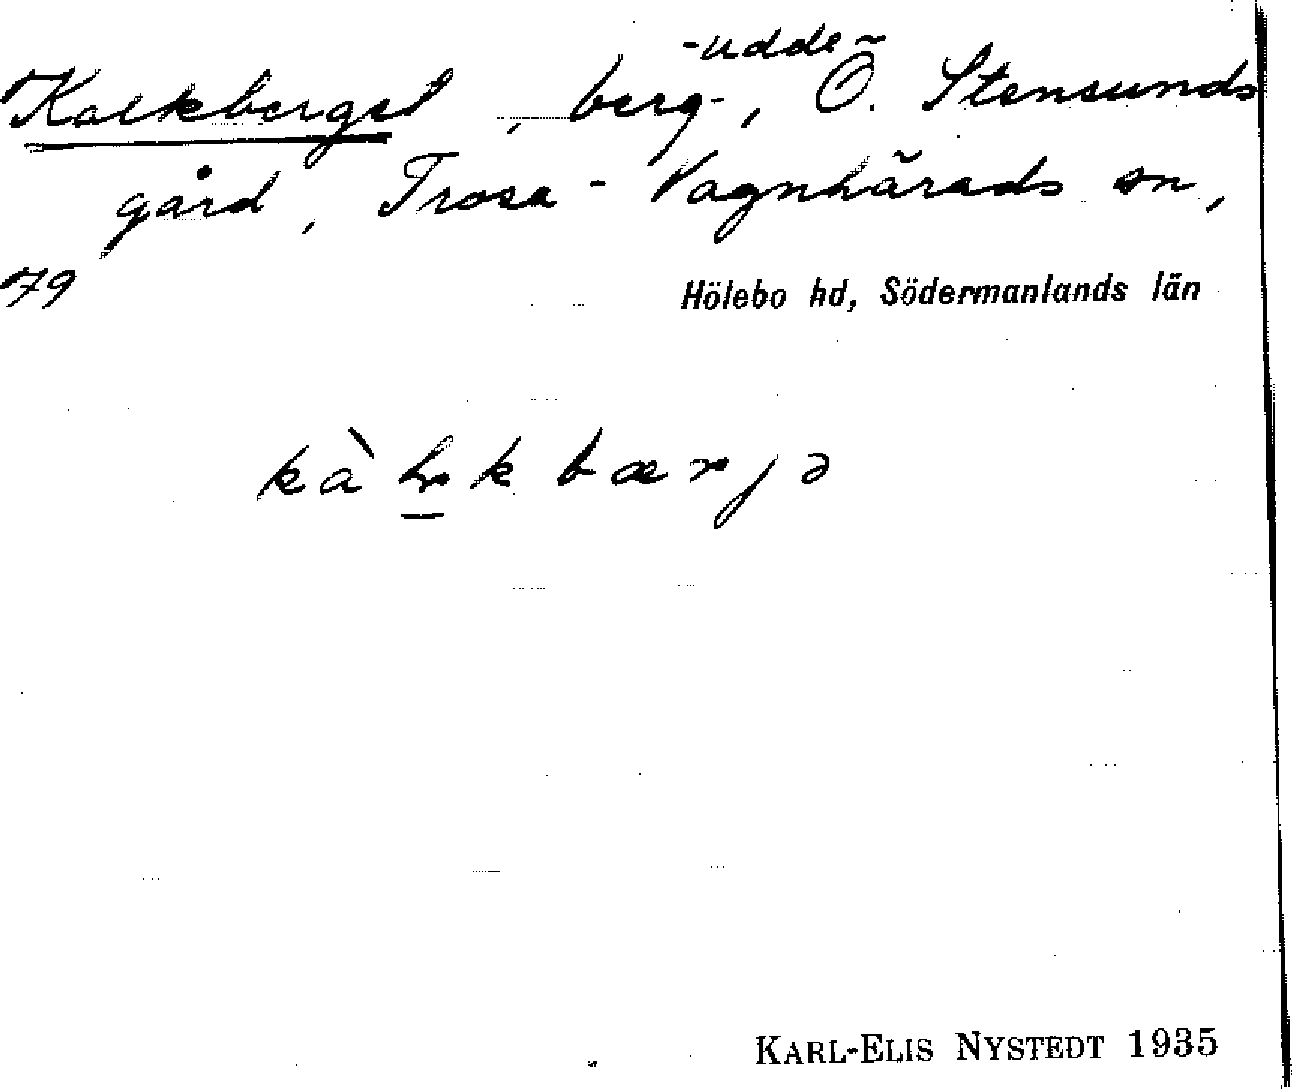 -udde
Kalkberget, berg-, Ö. Stensunds
gård, Trosa - Vagnhärads sn,
79
Hölebo hd, Södermanlands län
KARL-ELIS NYSTEDT 1935